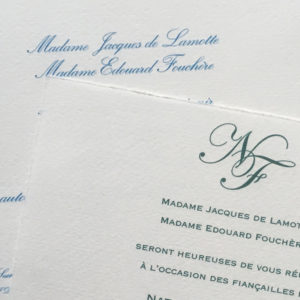 Madame Jacques de Lamotte
Madame Edouard Fouchère
auto
Sur
NF
MADAME JACQUES DE LAMOT
MADAME EDOUARD FOUCHÈR
SERONT HEUREUSES DE VOUS RÉ
À L'OCCASION DES FIANÇAILLES